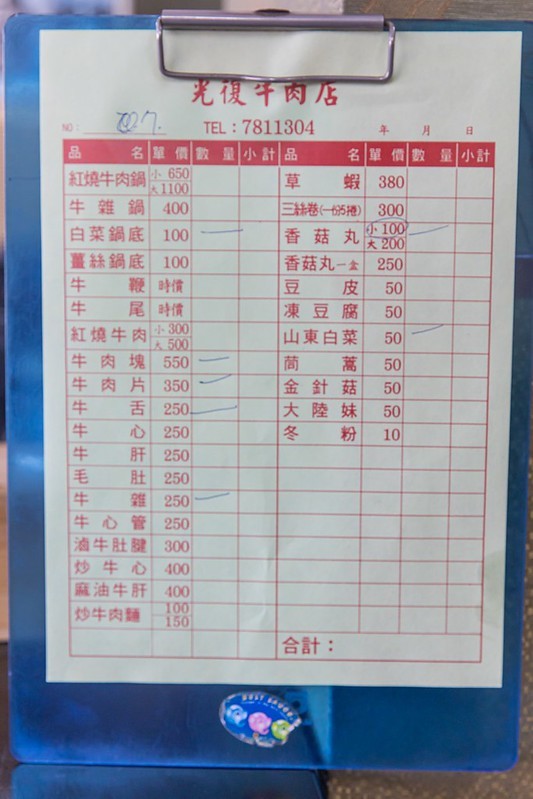 光復牛肉店
NO: TEL：7811304 年 月 日
品名 單價 數量 小計 品名 單價 數量 小計
紅燒牛肉鍋 小 650 大 1100 草蝦 380
牛雜鍋 400 三絲卷(一份5捲) 300
白菜鍋底 100 香菇丸 小 100 大 200
薑絲鍋底 100 香菇丸一盒 250
牛鞭 時價 豆皮 50
牛尾 時價 凍豆腐 50
紅燒牛肉 小 300 大 500 山東白菜 50
牛肉塊 550 茼蒿 50
牛肉片 350 金針菇 50
牛舌 250 大陸妹 50
牛心 250 冬粉 10
牛肝 250
毛肚 250
牛雜 250
牛心管 250
滷牛肚腱 300
炒牛心 400
麻油牛肝 400
炒牛肉麵 100 150
合計：